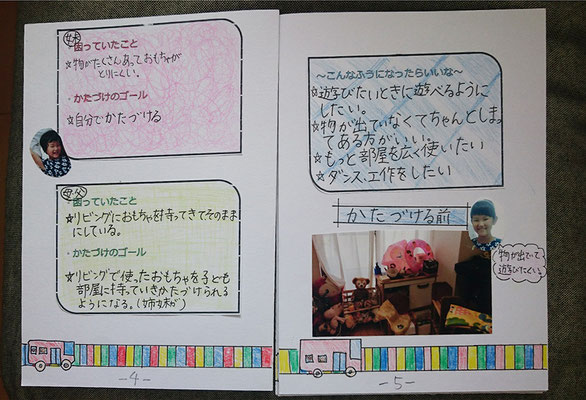 妹
・困っていたこと
☆物がたくさんあっておもちゃが
とりにくい。
・かたづけのゴール
☆自分でかたづける
母・父
・困っていたこと
☆リビングにおもちゃを持ってきてそのまま
にしている。
・かたづけのゴール
☆リビングで使ったおもちゃを子ども
部屋に持っていきかたづけられる
ようになる。(姉妹が)
-4-
～こんなふうになったらいいな～
☆遊びたいときに遊べるように
したい。
☆物が出ていなくてちゃんとしまっ
てある方がいい。
☆もっと部屋を広く使いたい
☆ダンス、工作をしたい
かたづける前
物が出ていて
遊びにくい。
-5-